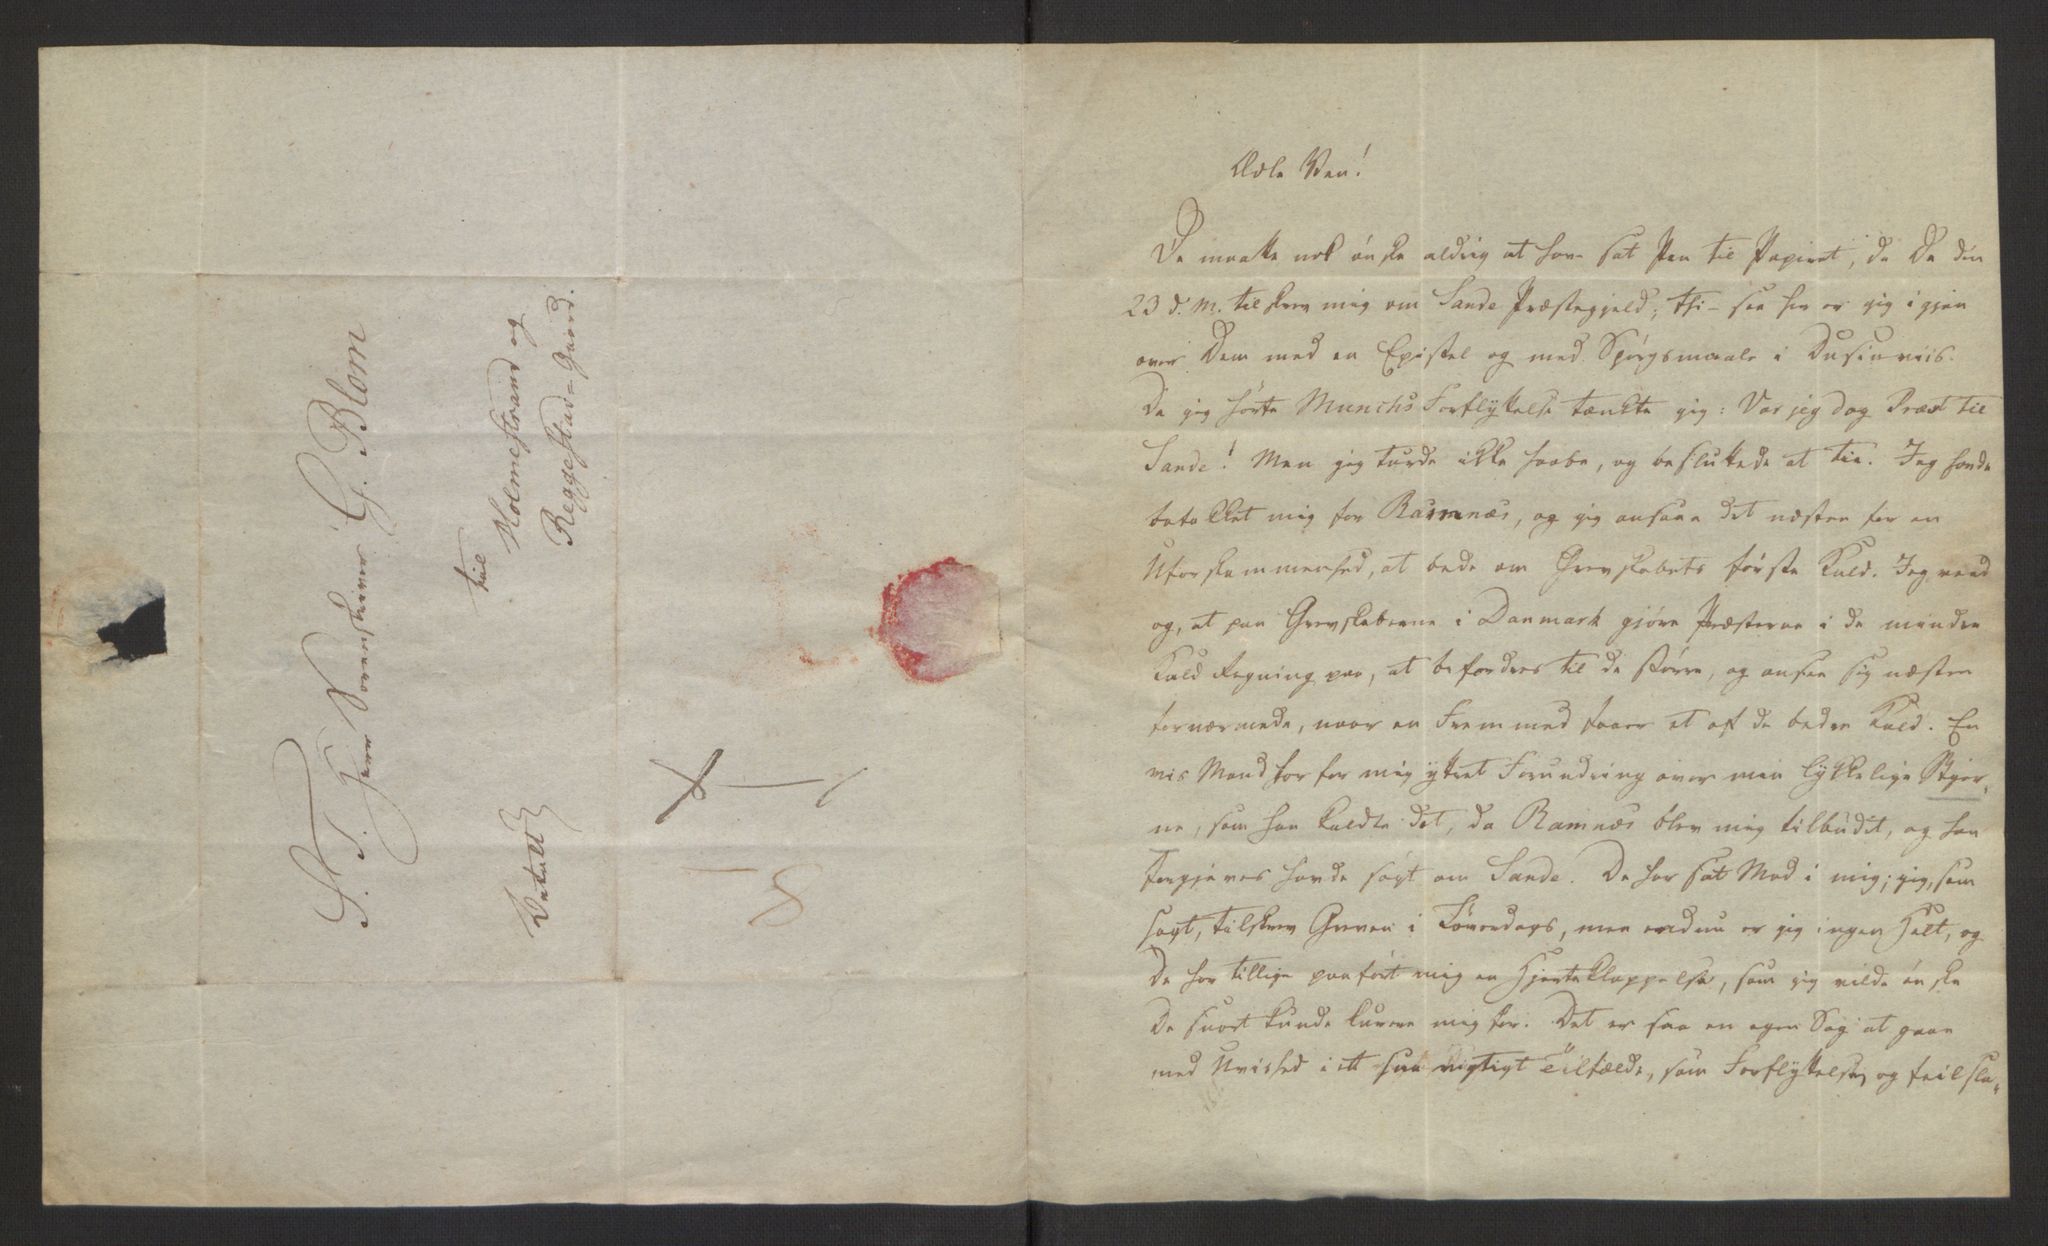 S. T. Herr Sorenskriver G. Blom
til
Holmestrand og
Reggestad-Gaard.
Betalt
8
Ædle Ven!
De maatte nok ønske aldrig at have sat Pen til Papiret, da De den
23 d. M. tilskrev mig om Sande Præstegjeld; thi - see her er jeg igjen
over Dem med en Epistel og med Spørgsmaale i Dusinviis.
Da jeg hørte Munchs Forflyttelse tænkte jeg: Var jeg dog Præst til
Sande! Men jeg turde ikke haabe, og besluttede at tie. Jeg havde
betakket mig for Ramnæs, og jeg ansaae det næsten for en
Uforskammenhed, at bede om Grevskabets første Kald. Jeg veed
og, at paa Grevskaberne i Danmark gjøre Præsterne i de mindre
Kald Regning paa, at befordres til de større, og ansee sig næsten
fornærmede, naar en Fremmed faaer et af de bedre Kald. En
vis Mand har for mig yttret Forundring over min lykkelige Stjer-
ne, som han kaldte det, da Ramnæs blev mig tilbudet, og han
forgjæves havde søgt om Sande. De har sat Mod i mig; jeg, som
sagt, tilskrev Greven i Løverdags, men endnu er jeg ingen Helt, og
De har tillige paaført mig en Hjerteklappelse, som jeg vilde ønske
De snart kunde kurere mig for. Det er saa en egen Sag at gaae
med Uvished i et saa vigtigt Tilfælde, som Forflyttelse, og feilsla-